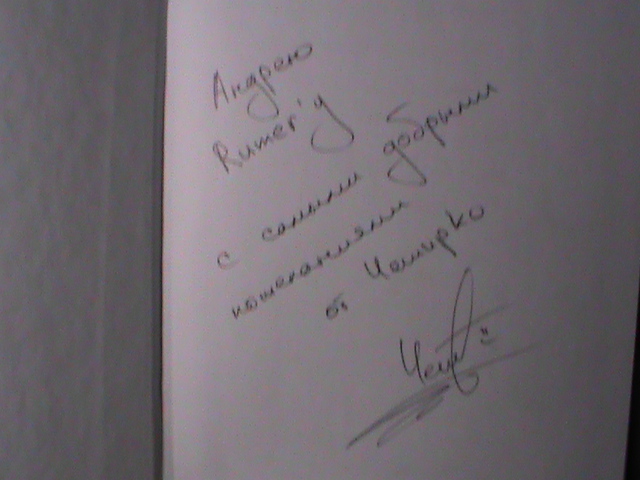 Андрею
Rumer'у
с самыми добрыми
пожеланиями
от Чеширко